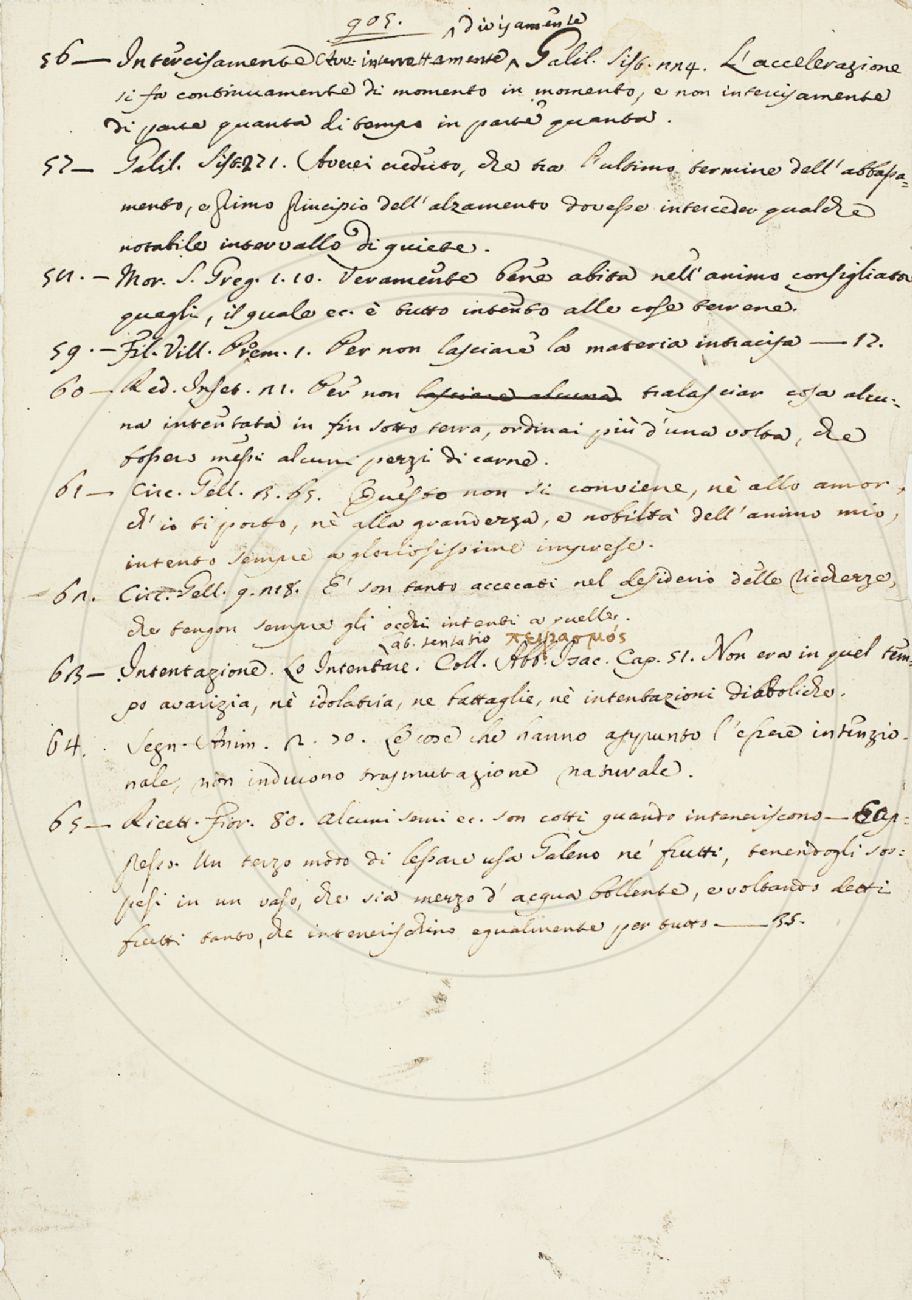 905.
^ divisamente
56 — Intercisamente Avv. interrottamente ^ Galil. Sist. 224. L'accelerazione
si fa continuamente di momento in momento, e non intercisamente
di parte quanta di tempo in parte quanta.
57 — Galil. Sist. 271. Averei creduto, che tra l'ultimo termine dell'abbassa-
mento, e primo principio dell'alzamento dovesse interceder qualche
notabile intervallo di quiete.
58. — Mor. S. Greg. 1. 10. Veramente bene abita nell'animo consigliato
quegli, il quale ec. è tutto intento alle cose terrene.
59. — Fil. Vill. Proem. 1. Per non lasciare la materia intracisa — 17.
60 — Red. Inset. 21. Per non lasciare alcuna tralasciar cosa alcu-
na intentata in fin sotto terra, ordinai più d'una volta, che
fossero messi alcuni pezzi di carne.
61 — Circ. Gell. 3. 65. Questo non si conviene, nè allo amor,
ch'io ti porto, nè alla grandezza, e nobiltà dell'animo mio,
intento sempre a gloriosissime imprese.
62. Circ. Gell. 9. 218. E' son tanto accecati nel desiderio delle ricchezze,
che tengon sempre gli occhi intenti a quelle.
Lat. tentatio πειρασμός
63 — Intentazione. Lo Intentare. Coll. Abb. Isac. Cap. 51. Non era in quel tem-
po avarizia, nè idolatria, ne battaglie, nè intentazioni diaboliche.
64. Segn. Anim. 2. 70. Le cose che hanno appunto l'essere intenzio-
nale, non inducono trasmutazione naturale.
65 — Ricett. Fior. 80. Alcuni semi ec. son cotti quando inteneriscono — E ap-
presso. Un terzo modo di lessare usa Galeno ne' frutti, tenendogli sos-
pesi in un vaso, che sia mezzo d'acqua bollente, e voltando detti
frutti tanto, che intenerischino egualmente per tutto — 35.